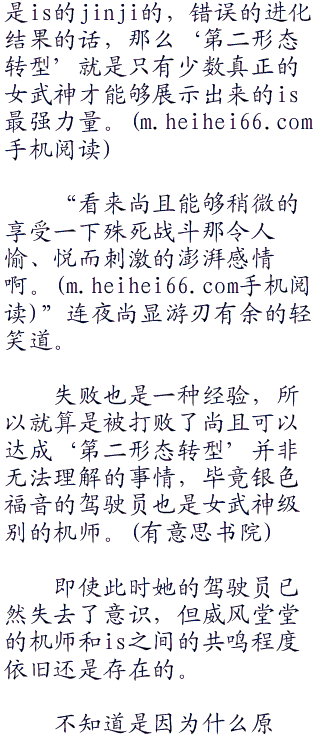 是is的jinji的，错误的进化
结果的话，那么‘第二形态
转型’就是只有少数真正的
女武神才能够展示出来的is
最强力量。(m.heihei66.com
手机阅读)
“看来尚且能够稍微的
享受一下殊死战斗那令人
愉、悦而刺激的澎湃感情
啊。(m.heihei66.com手机阅
读)”连夜尚显游刃有余的轻
笑道。
失败也是一种经验，所
以就算是被打败了尚且可以
达成‘第二形态转型’并非
无法理解的事情，毕竟银色
福音的驾驶员也是女武神级
别的机师。(有意思书院)
即使此时她的驾驶员已
然失去了意识，但威风堂堂
的机师和is之间的共鸣程度
依旧还是存在的。
不知道是因为什么原